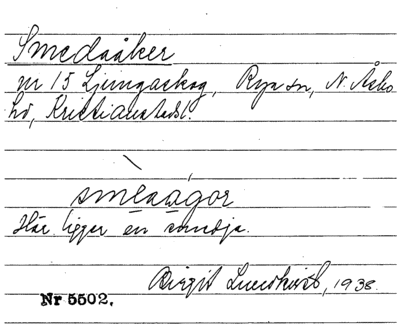 Smedaåker
nr 15 Ljungaskog, Rya sn, N. Åsbo
hd, Kristianstads l.
smèaágor
Här ligger en smedja.
Birgit Lundkvist, 1938.
Nr 5502.